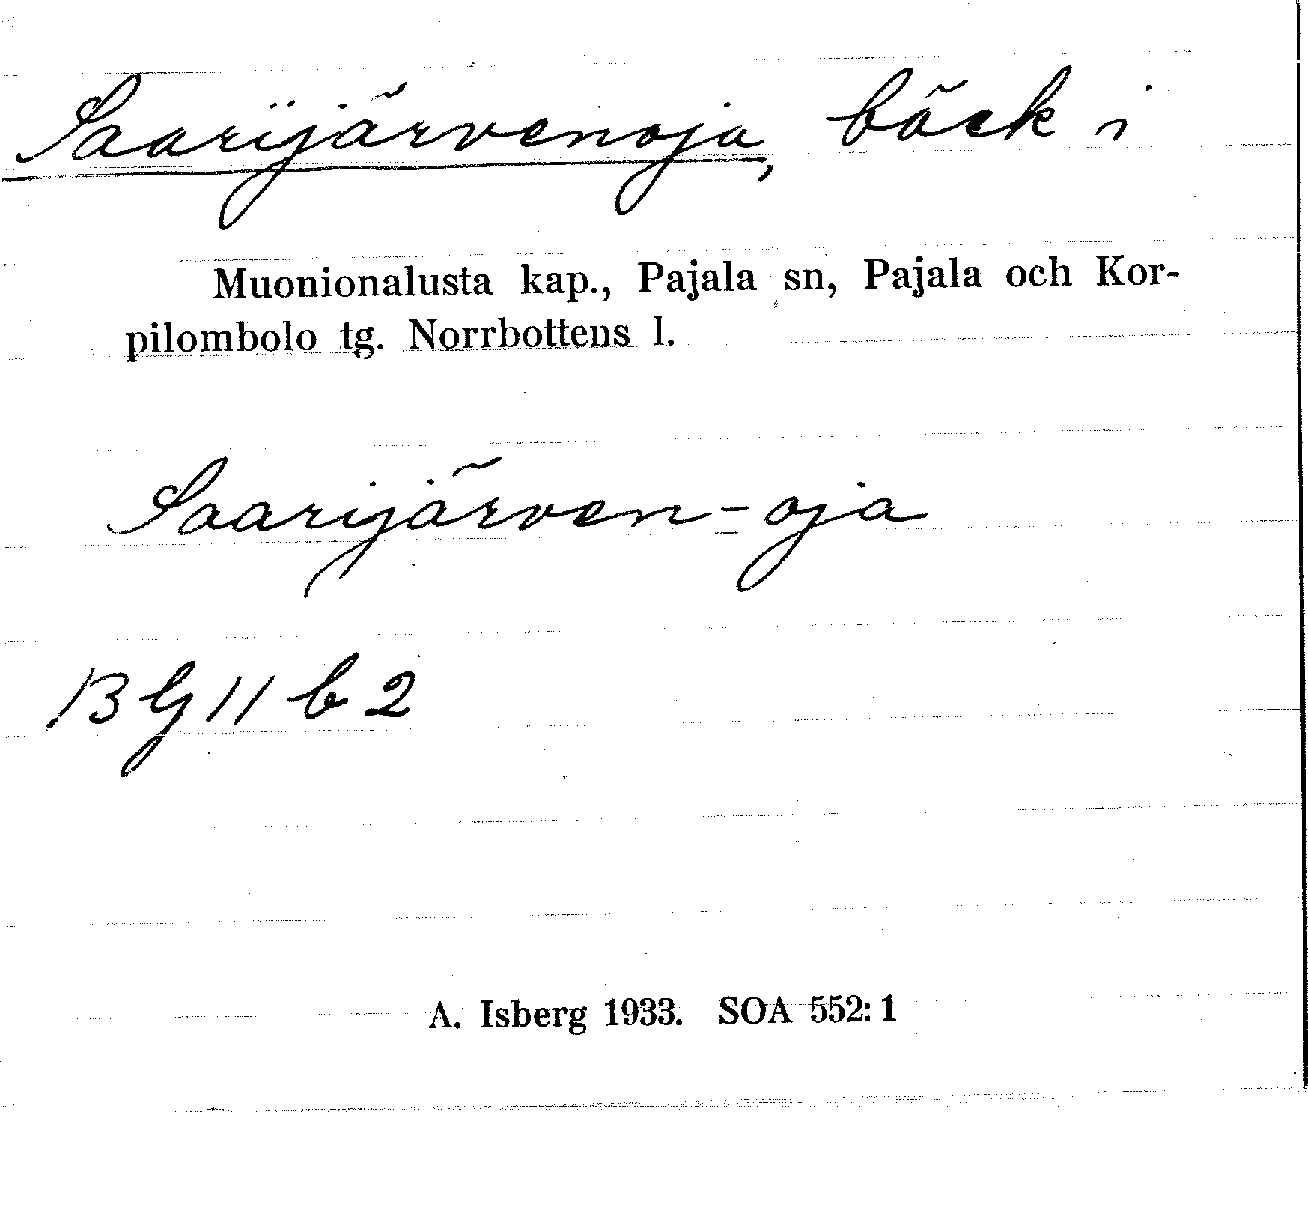 Saarijärvenoja, bäck i
Muonionalusta kap., Pajala sn, Pajala och Kor-
pilombolo tg. Norrbottens l.
Saarijärven-oja
BG 11 b 2
A. Isberg 1933. SOA 552:1